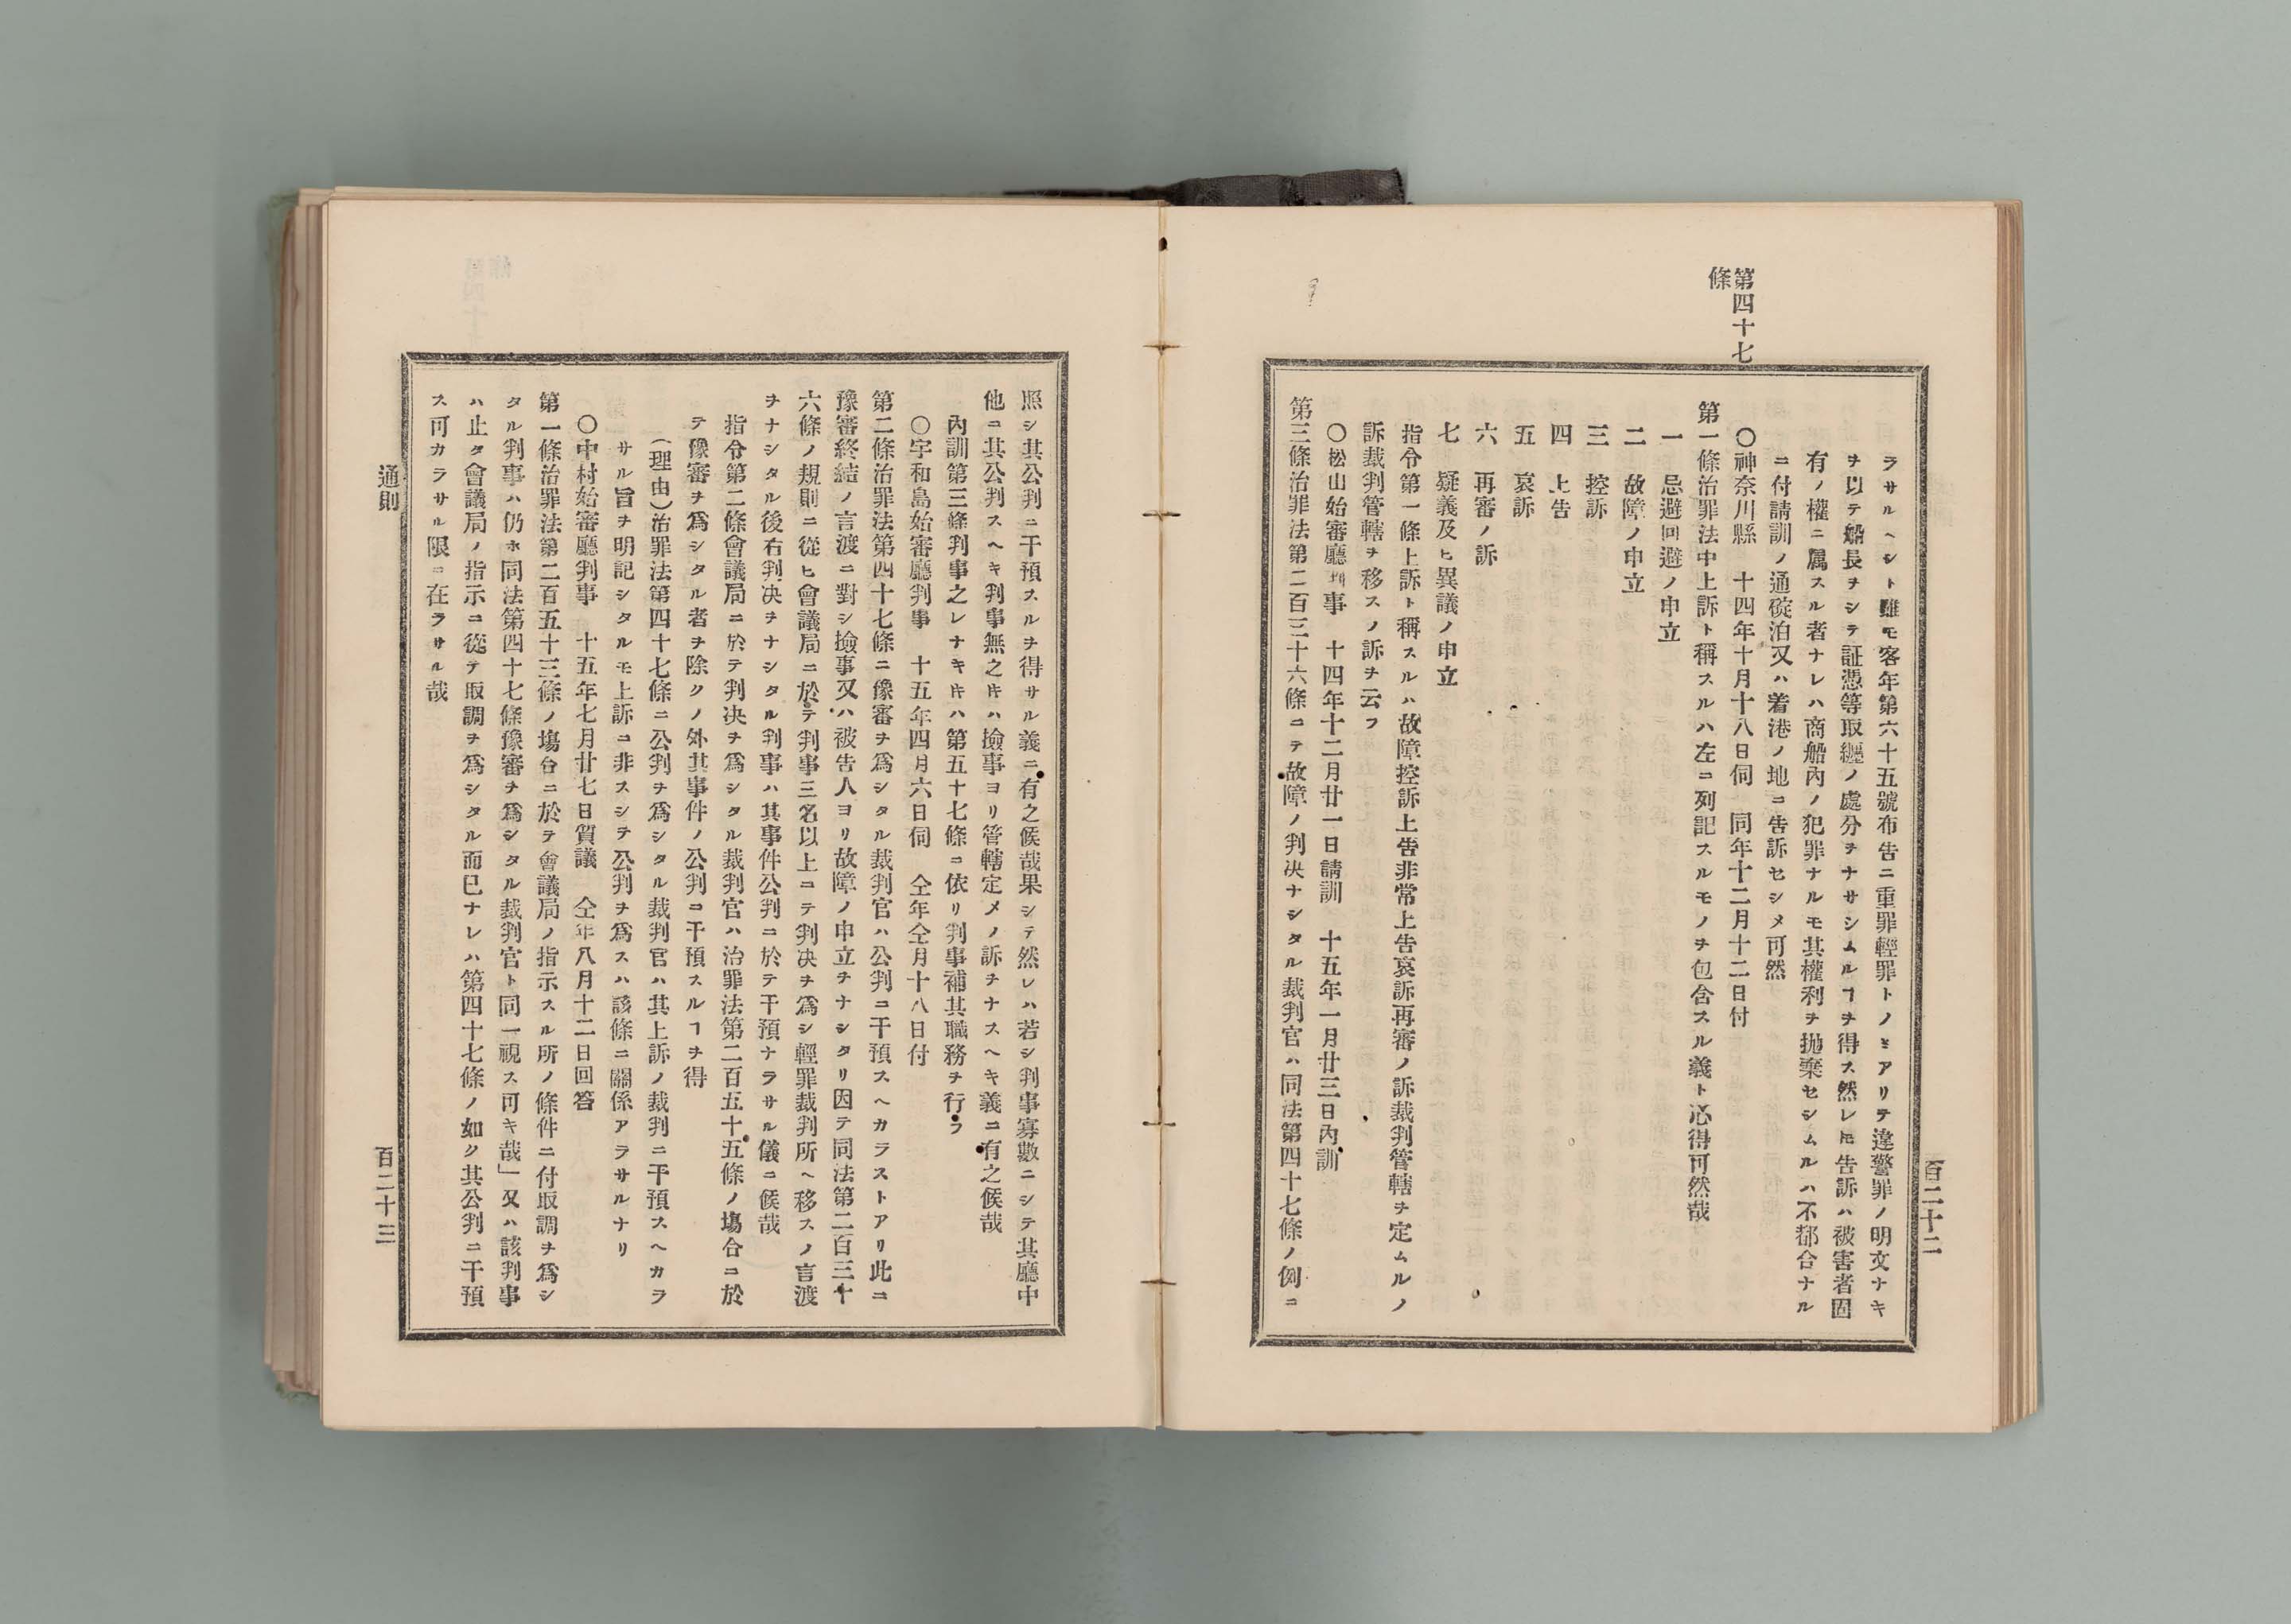 百二十二
ラサルヘシト雖モ客年第六十五號布告ニ重罪輕罪トノミアリテ違警罪ノ明文ナキ
ヲ以テ船長ヲシテ証憑等取纒ノ處分ヲナサシムルヿヲ得ス然レ𪜈告訴ハ被害者固
有ノ權ニ属スル者ナレハ商船內ノ犯罪ナルモ其權利ヲ抛棄セシムルハ不都合ナル
ニ付請訓ノ通碇泊又ハ着港ノ地ニ告訴セシメ可然
第四十七
條
〇神奈川縣　十四年十月十八日伺　同年十二月十二日付
第一條治罪法中上訴ト稱スルハ左ニ列記スルモノヲ包含スル義ト心得可然哉
一　忌避回避ノ申立
二　故障ノ申立
三　控訴
四　上告
五　哀訴
六　再審ノ訴
七　疑義及ヒ異議ノ申立
指令第一條上訴ト稱スルハ故障控訴上告非常上告哀訴再審ノ訴裁判管轄ヲ定ムルノ
訴裁判管轄ヲ移スノ訴ヲ云フ
〇松山始審廳判事　十四年十二月廿一日請訓　十五年一月廿三日內訓
第三條治罪法第二百三十六條ニテ故障ノ判决ナシタル裁判官ハ同法第四十七條ノ例ニ
照シ其公判ニ干預スルヲ得サル義ニ有之候哉果シテ然レハ若シ判事寡數ニシテ其廳中
他ニ其公判スヘキ判事無之𪜈ハ撿事ヨリ管轄定メノ訴ヲナスヘキ義ニ有之候哉
內訓第三條判事之レナキ𪜈ハ第五十七條ニ依リ判事補其職務ヲ行フ
〇宇和島始審廳判事　十五年四月六日伺　仝年仝月十八日付
第二條治罪法第四十七條ニ豫審ヲ爲シタル裁判官ハ公判ニ干預スヘカラストアリ此ニ
豫審終結ノ言渡ニ對シ撿事又ハ被告人ヨリ故障ノ申立ヲナシタリ因テ同法第二百三十
六條ノ規則ニ從ヒ會議局ニ於テ判事三名以上ニテ判决ヲ爲シ輕罪裁判所ヘ移スノ言渡
ヲナシタル後右判决ヲナシタル判事ハ其事件公判ニ於テ干預ナラサル儀ニ候哉
指令第二條會議局ニ於テ判决ヲ爲シタル裁判官ハ治罪法第二百五十五條ノ塲合ニ於
テ豫審ヲ爲シタル者ヲ除クノ外其事件ノ公判ニ干預スルヿヲ得
（理由）治罪法第四十七條ニ公判ヲ爲シタル裁判官ハ其上訴ノ裁判ニ干預スヘカラ
サル旨ヲ明記シタルモ上訴ニ非スシテ公判ヲ爲スハ該條ニ關係アラサルナリ
〇中村始審廳判事　十五年七月廿七日質議　仝年八月十二日回答
第一條治罪法第二百五十三條ノ塲合ニ於テ會議局ノ指示スル所ノ條件ニ付取調ヲ爲シ
タル判事ハ仍ホ同法第四十七條豫審ヲ爲シタル裁判官ト同一視ス可キ哉」又ハ該判事
ハ止タ會議局ノ指示ニ從テ取調ヲ爲シタル而已ナレハ第四十七條ノ如ク其公判ニ干預
ス可カラサル限ニ在ラサル哉
通則
百二十三